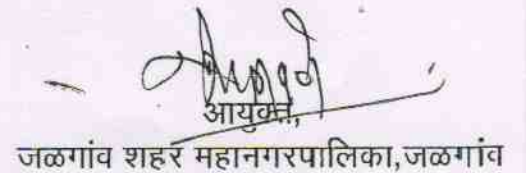 आयुक्त,
जळगांव शहर महानगरपालिका,जळगांव